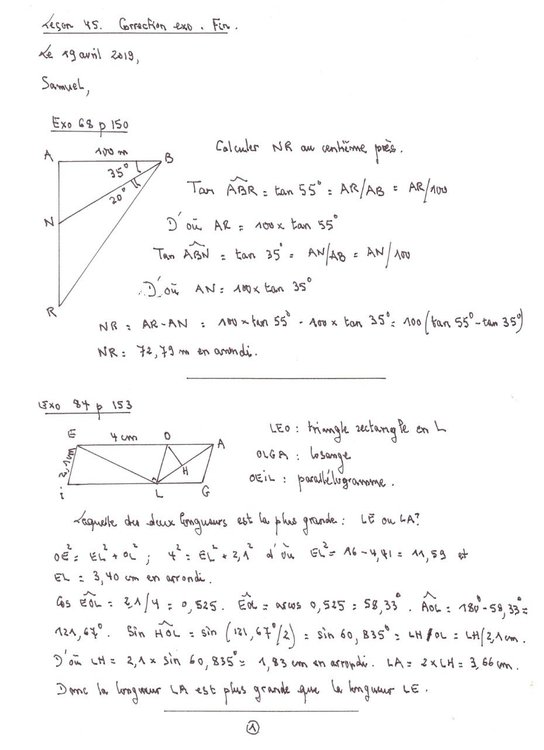 Leçon 45. Correction exo. Fin.
Le 19 avril 2019,
Samuel,
Exo 68 p 150
A 100 m B
35°
20°
N
R
Calculer NR au centième près.
Tan ABR = tan 55° = AR/AB = AR/100
D'où AR = 100 x tan 55°
Tan ABN = tan 35° = AN/AB = AN/100
D'où AN = 100 x tan 35°
NR = AR-AN = 100 x tan 55° - 100 x tan 35° = 100 (tan 55° - tan 35°)
NR = 72,79 m en arrondi.
Exo 84 p 153
E 4 cm O A
2,1 cm
H
i L G
LEO : triangle rectangle en L
OLGA : losange
OEiL : parallélogramme.
Laquelle des deux longueurs est la plus grande : LE ou LA?
OE² = EL² + OL² ; 4² = EL² + 2,1² d'où EL² = 16 - 4,41 = 11,59 et
EL = 3,40 cm en arrondi.
Cos EOL = 2,1/4 = 0,525. EOL = arcos 0,525 = 58,33°. AOL = 180° - 58,33° =
121,67°. Sin HOL = sin (121,67°/2) = sin 60,835° = LH/OL = LH/2,1 cm.
D'où LH = 2,1 x sin 60,835° = 1,83 cm en arrondi. LA = 2 x LH = 3,66 cm.
Donc la longueur LA est plus grande que la longueur LE.
1